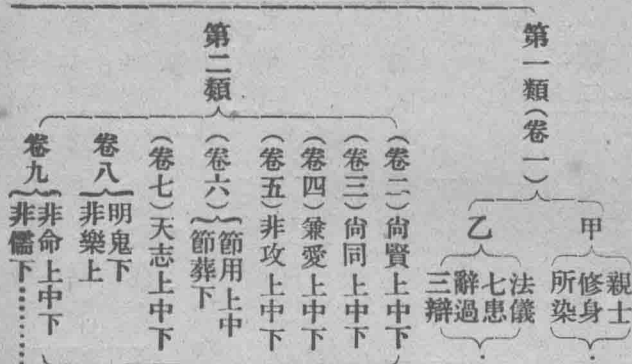 第一類(卷一)
甲
親士
修身
所染
乙
法儀
七患
辭過
三辯
第二類
(卷二)尙賢上中下
(卷三)尙同上中下
(卷四)兼愛上中下
(卷五)非攻上中下
(卷六)
節用上中
節葬下
(卷七)天志上中下
卷八
明鬼下
非樂上
卷九
非命上中下
非儒下………